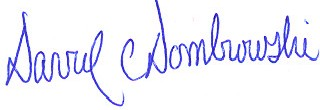 Darryl C Dombrowski